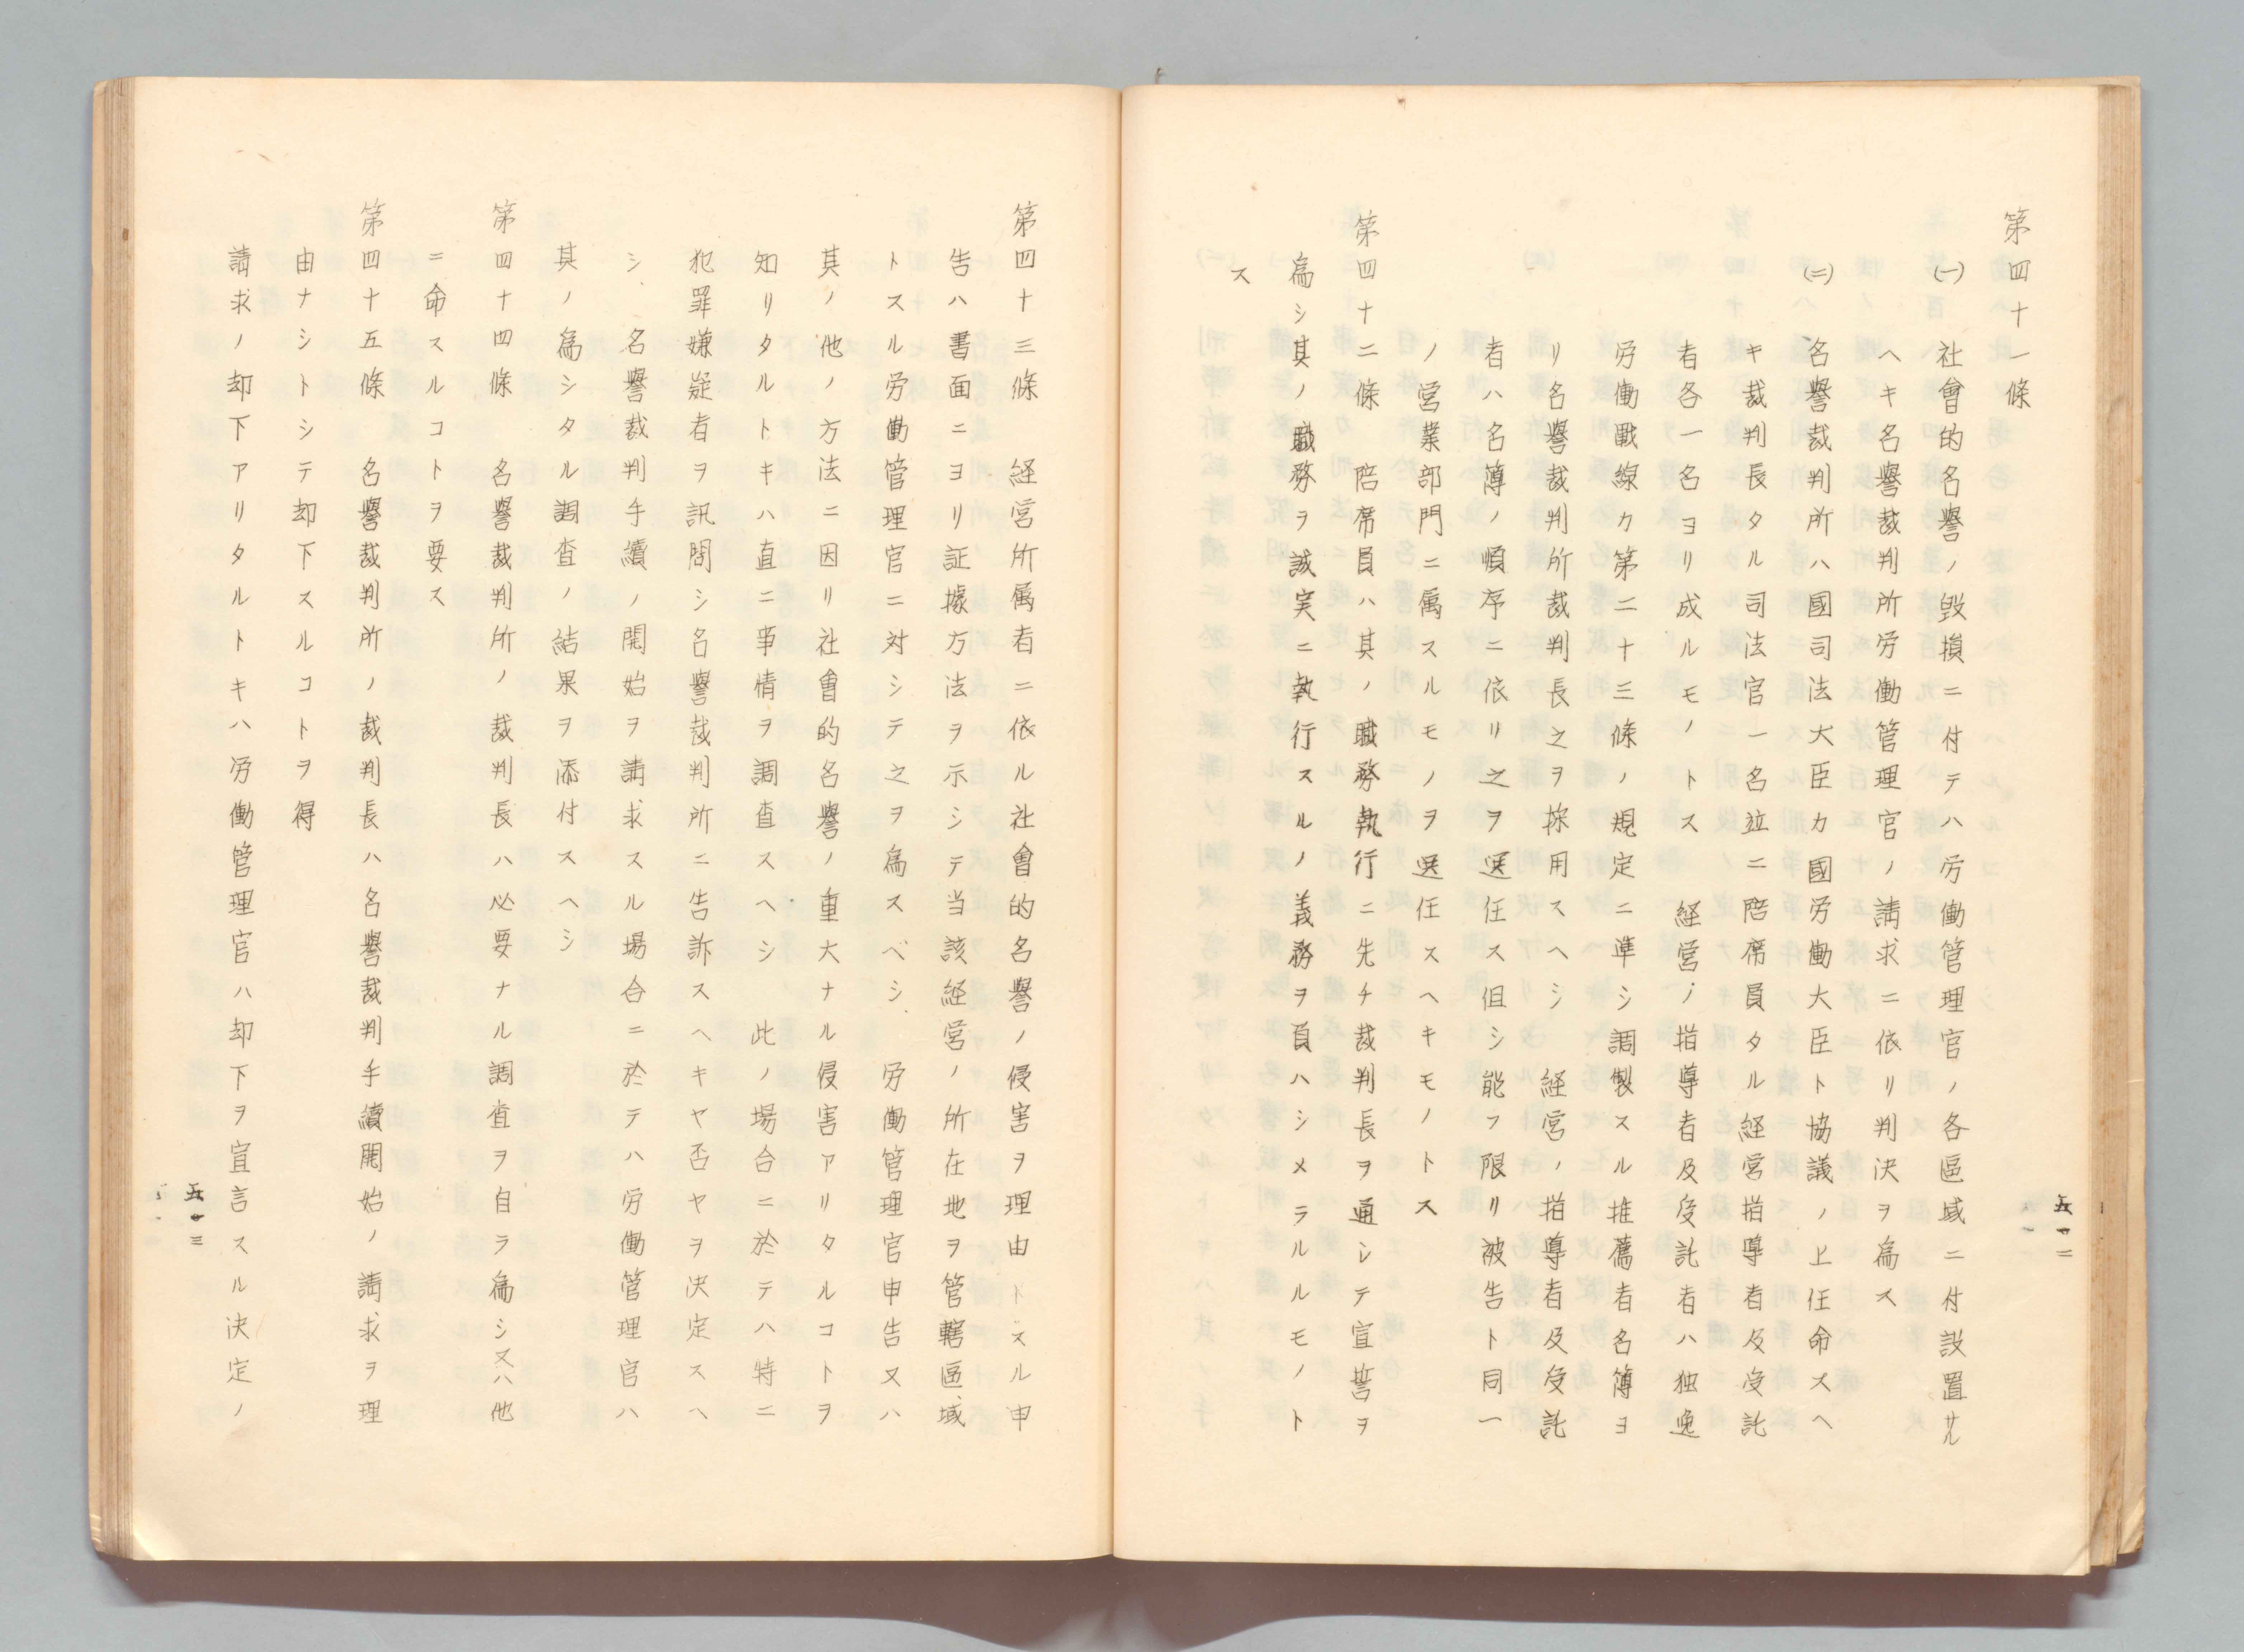 第四十一條
(一) 社會的名譽ノ毀損ニ付テハ労働管理官ノ各區域ニ付設置サル
ヘキ名譽裁判所労働管理官ノ請求ニ依リ判決ヲ爲ス
(二) 名譽裁判所ハ國司法大臣カ國労働大臣ト協議ノ上任命スヘ
キ裁判長タル司法官一名竝ニ陪席員タル経営指導者及受託
者各一名ヨリ成ルモノトス 経営ノ指導者及受託者ハ独逸
労働戰線カ第二十三條ノ規定ニ準シ調製スル推薦者名簿ヨ
リ名譽裁判所裁判長之ヲ採用スヘシ 経営ノ指導者及受託
者ハ名簿ノ順序ニ依リ之ヲ選任ス但シ能フ限リ被告ト同一
ノ営業部門ニ属スルモノヲ選任スヘキモノトス
第四十二條 陪席員ハ其ノ職務執行ニ先チ裁判長ヲ通シテ宣誓ヲ
爲シ其ノ職務ヲ誠実ニ執行スルノ義務ヲ負ハシメラルルモノト
ス
五一二
第四十三條 経営所属者ニ依ル社會的名譽ノ侵害ヲ理由トスル申
告ハ書面ニヨリ証據方法ヲ示シテ当該経営ノ所在地ヲ管轄區域
トスル労働管理官ニ対シテ之ヲ爲スベシ 労働管理官申告又ハ
其ノ他ノ方法ニ因リ社會的名譽ノ重大ナル侵害アリタルコトヲ
知リタルトキハ直ニ事情ヲ調査スヘシ 此ノ場合ニ於テハ特ニ
犯罪嫌疑者ヲ訊問シ名譽裁判所ニ告訴スヘキヤ否ヤヲ決定スヘ
シ 名譽裁判手續ノ開始ヲ請求スル場合ニ於テハ労働管理官ハ
其ノ爲シタル調査ノ結果ヲ添付スヘシ
第四十四條 名譽裁判所ノ裁判長ハ必要ナル調査ヲ自ラ爲シ又ハ他
ニ命スルコトヲ要ス
第四十五條 名譽裁判所ノ裁判長ハ名譽裁判手續開始ノ請求ヲ理
由ナシトシテ却下スルコトヲ得
請求ノ却下アリタルトキハ労働管理官ハ却下ヲ宣言スル決定ノ
五一三